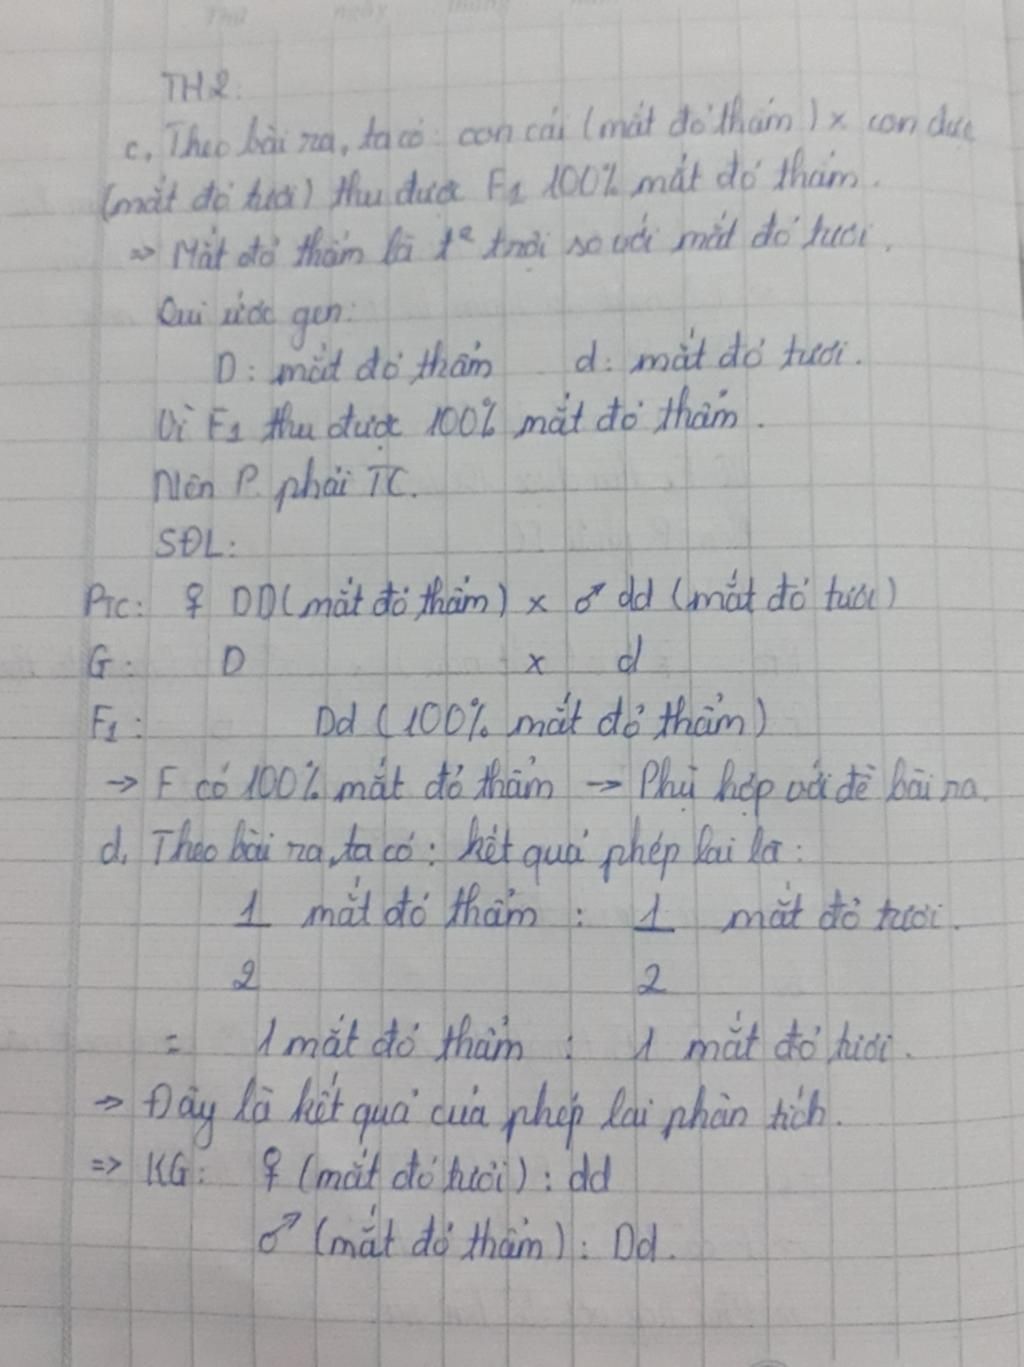 Thứ ngày tháng
TH2:
c, Theo bài ra, ta có: con cái (mắt đỏ thẩm) x con đực
(mắt đỏ tươi) thu được F1 100% mắt đỏ thẩm.
=> Mắt đỏ thẩm là t² trội so với mắt đỏ tươi.
Qui ước gen:
D: mắt đỏ thẩm d: mắt đỏ tươi.
Vì F1 thu được 100% mắt đỏ thẩm.
Nên P phải TC.
SĐL:
PTC: ♀ DD (mắt đỏ thẩm) x ♂ dd (mắt đỏ tươi)
G: D x d
F1: Dd (100% mắt đỏ thẩm)
→ F có 100% mắt đỏ thẩm → Phù hợp với đề bài ra.
d, Theo bài ra, ta có: kết quả phép lai là:
1 mắt đỏ thẩm : 1 mắt đỏ tươi.
2 2
= 1 mắt đỏ thẩm : 1 mắt đỏ tươi.
=> Đây là kết quả của phép lai phân tích.
=> KG: ♀ (mắt đỏ tươi): dd
♂ (mắt đỏ thẩm): Dd.